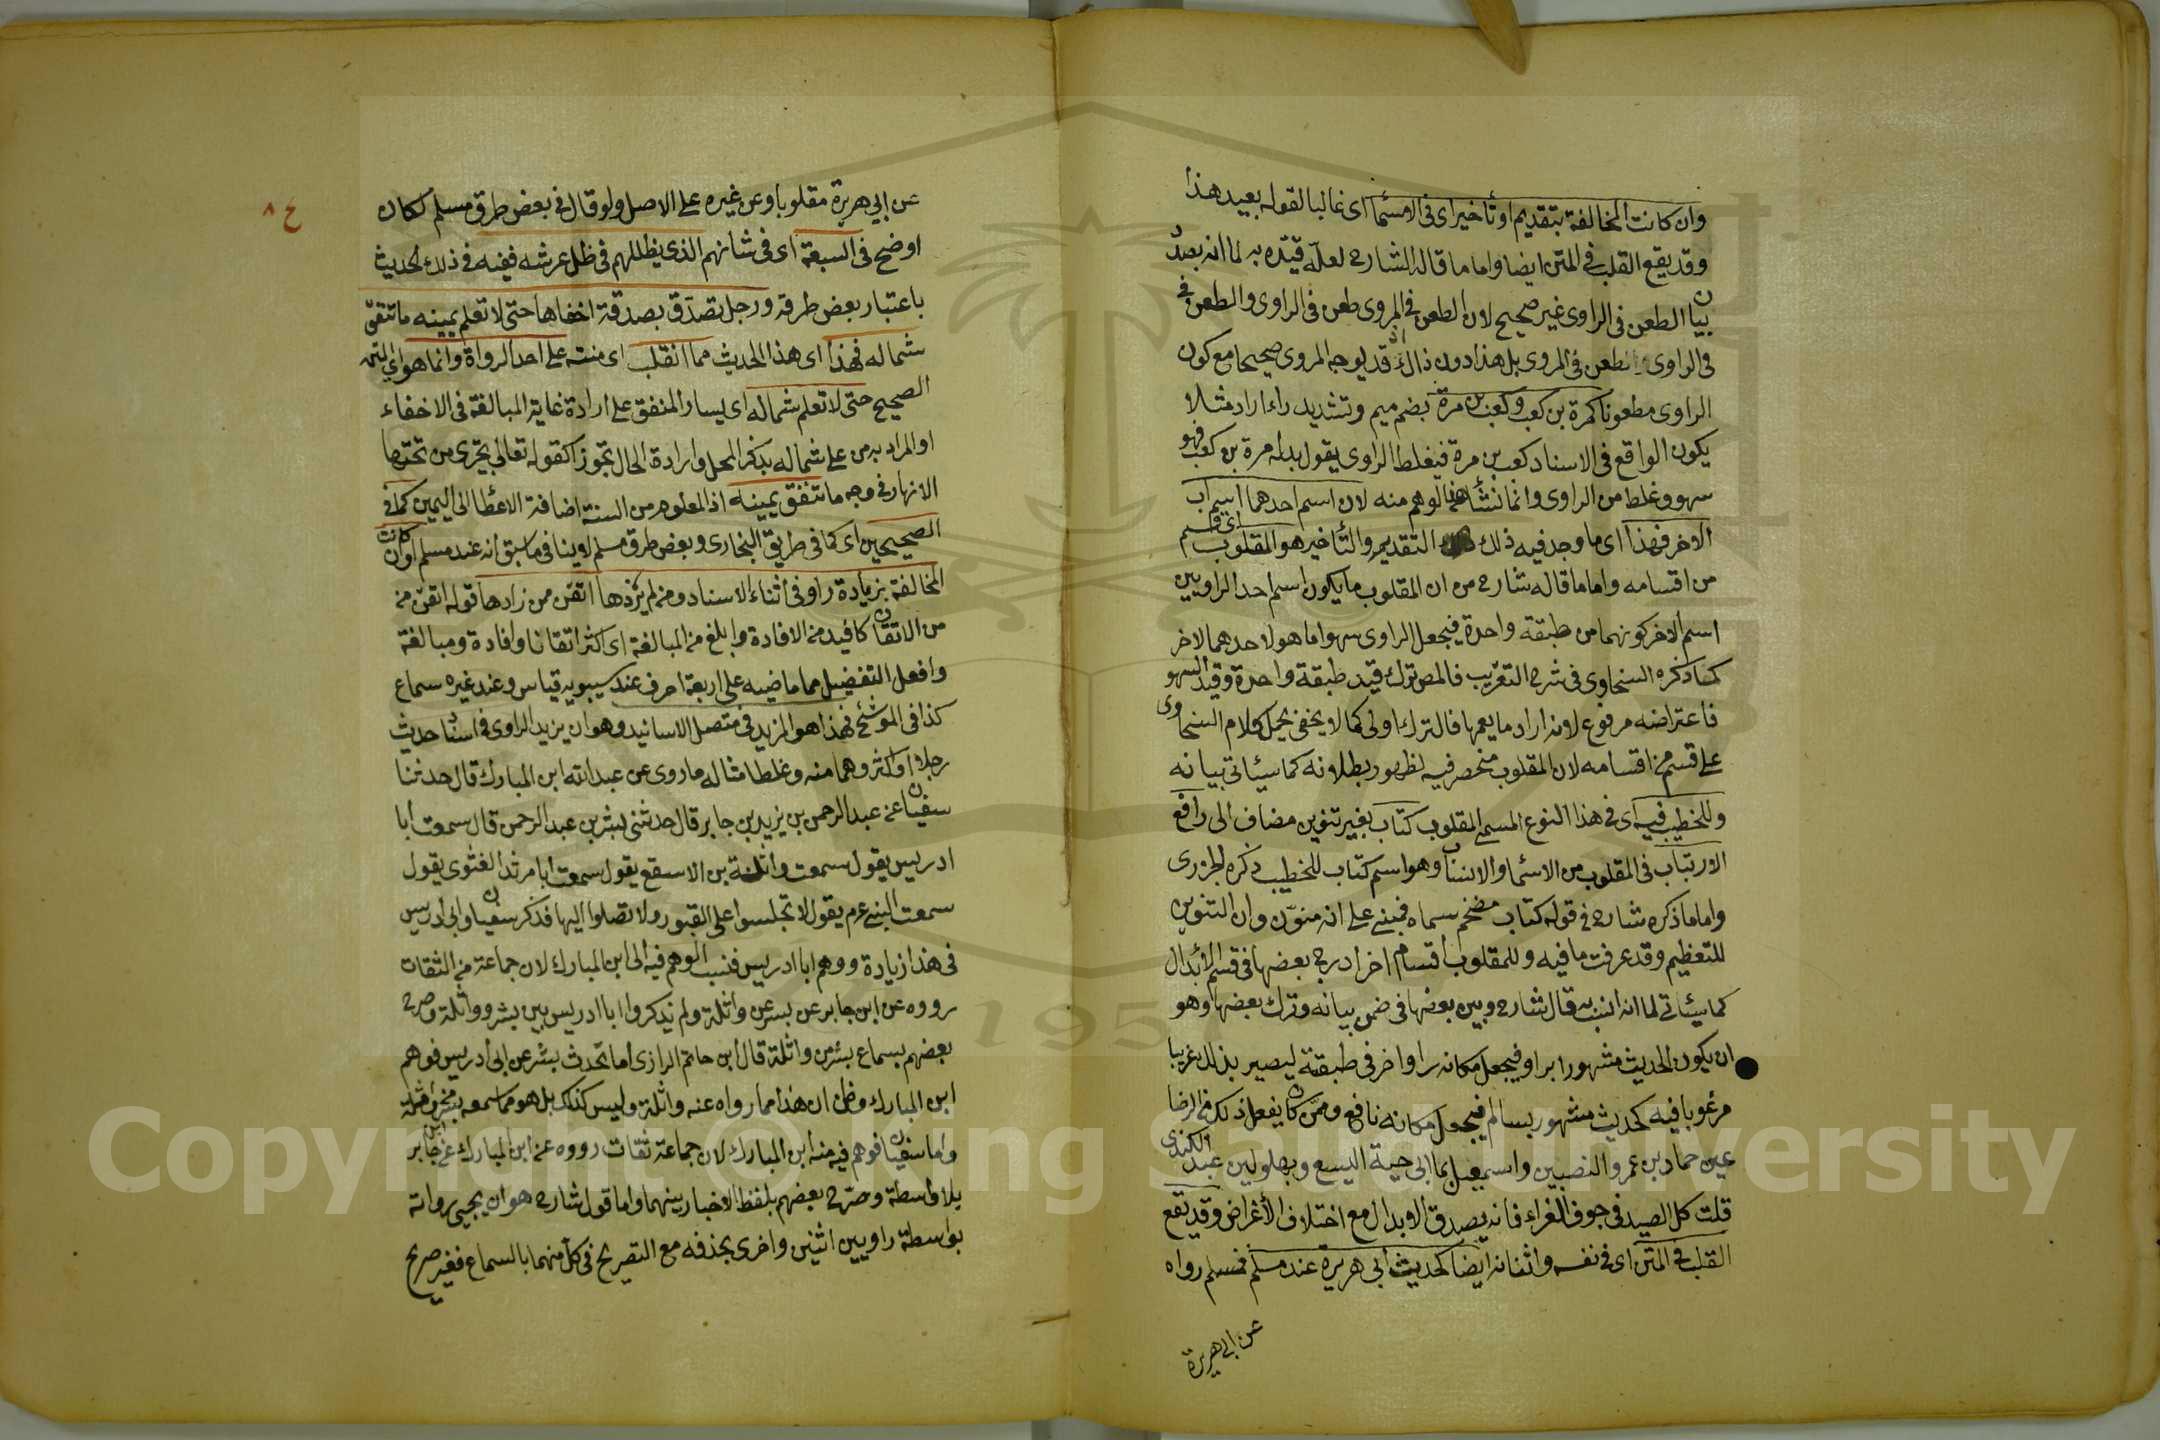 وان كانت المخالفة بتقديم او تأخير اى فى الاسمآء اى غالبا لقوله بعيد هذا
وقد يقع القلب فى المتن ايضا واما ما قاله الشارح لعله قيّده به لما انه بصدد
بيان الطعن فى الراوى غير صحيح لان الطعن فى المروى طعن فى الراوى والطعن فى
فى الراوى طعن فى المروى بل هذا دون ذاك اذ قد يوجد المروى صحيحا مع كون
الراوى مطعونا كمرة بن كعب وكعب بن مرة بضم ميم وتشديد راء اراد مثلا
يكون الواقع فى الاسناد كعب بن مرة فيغلط الراوى يقول بدله مرة بن كعب فهو
سهو وغلط من الراوى وانما نشأ هذا الوهم منه لان اسم احدهما اسم اب
الاخر فهذا اى ما وجد فيه ذلك التقديم والتأخير هو المقلوب اى قسم
من اقسامه واما ما قاله شارح من ان المقلوب ما يكون اسم احد الراويين
اسم الاخر كونهما من طبقة واحدة فيجعل الراوى سهوا ما هو لاحدهما لاخر
كما ذكره السخاوى فى شرح التقريب فالمص ترك قيد طبقة واحدة وقيد السهو
فاعتراضه مرفوع لانه اراد ما يعمها فالترك اولى كما لا يخفى يحمل كلام السخاوى
على قسم من اقسامه لان المقلوب منحصر فيه لظهور بطلانه كما سيئاتى بيانه
وللخطيب فيه اى فى هذا النوع المسمى المقلوب كتاب بغير تنوين مضاف الى رافع
الارتياب فى المقلوب من الاسما والانساب وهو اسم كتاب للخطيب ذكره الجزرى
واما ما ذكره شارح فى قوله كتاب مضخم سماه فمبنى على انه منوّن وان التنوين
للتعظيم وقد عرفت ما فيه وللمقلوب اقسام اخر ادرج بعضها فى قسم الابدال
كما سيئاتى لما انه انسب به قال شارح وبين بعضها فى ضمن بيانه وترك بعضها وهو
ان يكون الحديث مشهورا براو فيجعل مكانه راو اخر فى طبقته ليصير بذلك غريبا
مرغوبا فيه كحديث مشهور بسالم فيجعل مكانه نافع وممن كان يفعل ذلك من الوضا
عين حماد بن عمرو النصيبى واسمعيل بن ابى حية اليسع وبهلول بن عبد الكندى
قلت كل الصيد فى جوف الفراء فانه يصدق الابدال مع اختلاف الأغراض وقد يقع
القلب فى المتن اى فى نفسه واثنائه ايضا كحديث ابى هريرة عند مسلم فمسلم رواه
عن ابى هريرة
ع ٨
عن ابى هريرة مقلوبا وعن غيره على الاصل ولو قال فى بعض طرق مسلم لكان
اوضح فى السبعة اى فى شانهم الذى يظلهم فى ظل عرشه ففيه فى ذلك الحديث
باعتبار بعض طرقه ورجل تصدّق بصدقة اخفاها حتى لا تعلم يمينه ما تنفق
شماله فهذا اى هذا الحديث مما انقلب اى متنه على احد الرواة وانما هو اى المتن
الصحيح حتى لا تعلم شماله اى يسار المنفق على ارادة غاية المبالغة فى الاخفاء
او المراد به من على شماله بذكر المحل وارادة الحال تجوزا كقوله تعالى تجرى من تحتها
الانهار فى وجه ما تنفق يمينه اذ المعلوم من السنة اضافة الاعطا الى اليمين كما فى
الصحيحين اى كما فى طريق البخارى وبعض طرق مسلم لا ينافى ما سبق انه عند مسلم او ان كانت
المخالفة بزيادة راو فى أثناء الاسناد ومن لم يزدها اتقن ممن زادها قوله اتقن من
من الاتقان كافيد من الافادة وابلغ من المبالغة اى اكثر اتقانا وافادة ومبالغة
وافعل التفضيل مما ماضيه على اربعة احرف عند سيبويه قياس وعند غيره سماع
كذا فى الموشح فهذا هو المزيد فى متصل الاسانيد وهو ان يزيد الراوى فى اسناد حديث
رجلا او اكثر وهما منه وغلطا مثاله ما روى عن عبد الله ابن المبارك قال حدثنا
سفيان عن عبد الرحمن بن يزيد بن جابر قال حدثنى بشر بن عبد الرحمن قال سمعت ابا
ادريس يقول سمعت واثلة بن الاسقع يقول سمعت ابا مرثد الغنوى يقول
سمعت النبى عم يقول لا تجلسوا على القبور ولا تصلوا اليها فذكر سفيان وابى ادريس
فى هذا زيادة ووهم ابا ادريس فنسب الوهم فيه الى ابن المبارك لان جماعة من الثقات
رووه عن ابن جابر عن بسر عن واثلة ولم يذكروا ابا ادريس بين بشر وواثلة وصرح
بعضهم بسماع بشر من واثلة قال ابن حاتم الرازى اما تحدث بشر عن ابى ادريس فوهم
ابن المبارك وظن ان هذا مما رواه عنه واثلة وليس كذلك بل هو مما سمعه بشر من واثلة
واما سفيان فوهم فيه منه ابن المبارك لان جماعة ثقات رووه عن ابن المبارك عن ابن جابر
بلا واسطة وصرّح بعضهم بلفظ الاخبار بينهما واما قول شارح هو ان يجيى رواته
بواسطة راويين اثنين واخرى بحذفه مع التصريح فى كل منهما بالسماع فغير صريح